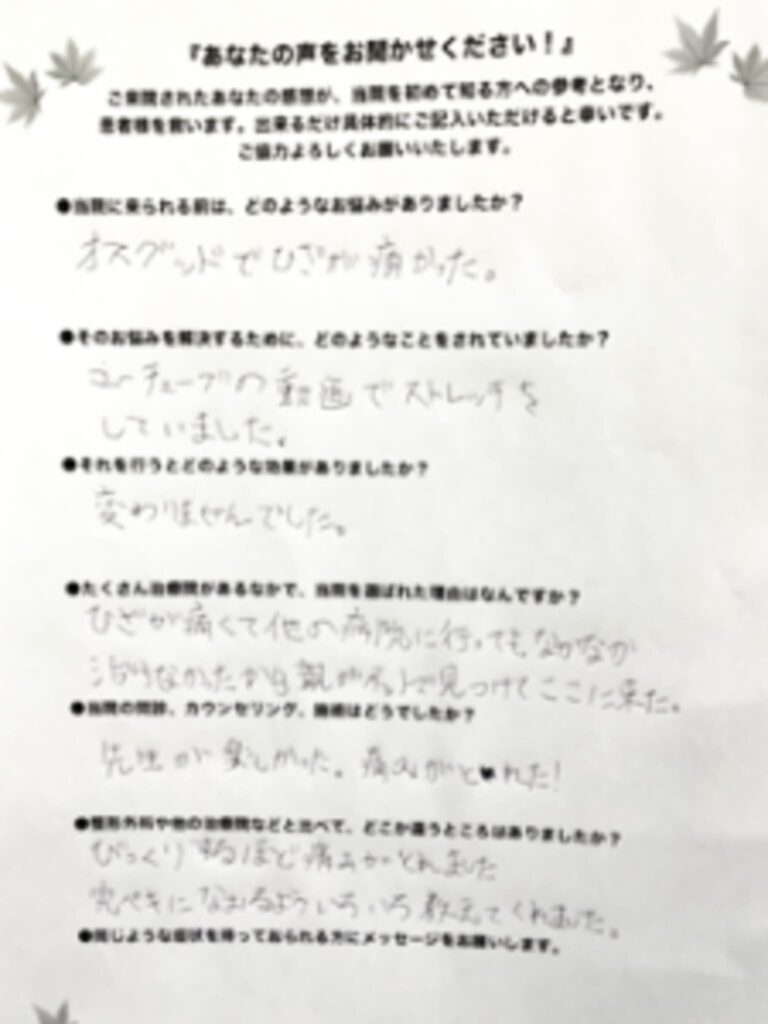 『あなたの声をお聞かせください！』
ご来院されたあなたの感想が、当院を初めて知る方への参考となり、
患者様を救います。出来るだけ具体的にご記入いただけると幸いです。
ご協力よろしくお願いいたします。
●当院に来られる前は、どのようなお悩みがありましたか？
オスグッドでひざが痛かった。
●そのお悩みを解決するために、どのようなことをされていましたか？
ユーチューブの動画でストレッチを
していました。
●それを行うとどのような効果がありましたか？
変わりませんでした。
●たくさん治療院があるなかで、当院を選ばれた理由はなんですか？
ひざが痛くて他の病院に行ってもなかなか
治けなかったから親がネットで見つけてここに来た。
●当院の問診、カウンセリング、施術はどうでしたか？
先生が楽しかった。痛みがとれた！
●整形外科や他の治療院などと比べて、どこか違うところはありましたか？
びっくりするほど痛みがとれました
完ペキになおるよういろいろ教えてくれました。
●同じような症状を持っておられる方にメッセージをお願いします。